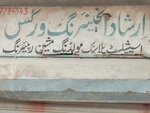 7734543
ارشاد انجینئرنگ ورکس
اسپیشلسٹ پلاسٹک مولڈنگ مشین ریپئرنگ